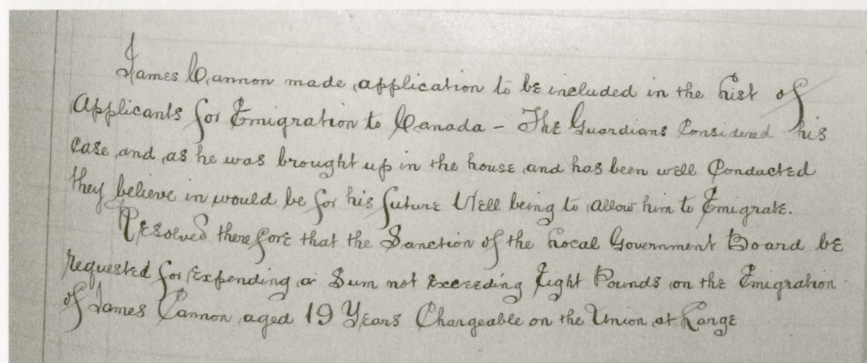 James Cannon made application to be included in the List of
Applicants for Emigration to Canada – The Guardians Considered his
Case and as he was brought up in the house and has been well Conducted
they believe in would be for his future Well being to allow him to Emigrate.
Resolved therefore that the Sanction of the Local Government Board be
requested for Expending a Sum not Exceeding Eight Pounds on the Emigration
of James Cannon aged 19 Years Chargeable on the Union at Large